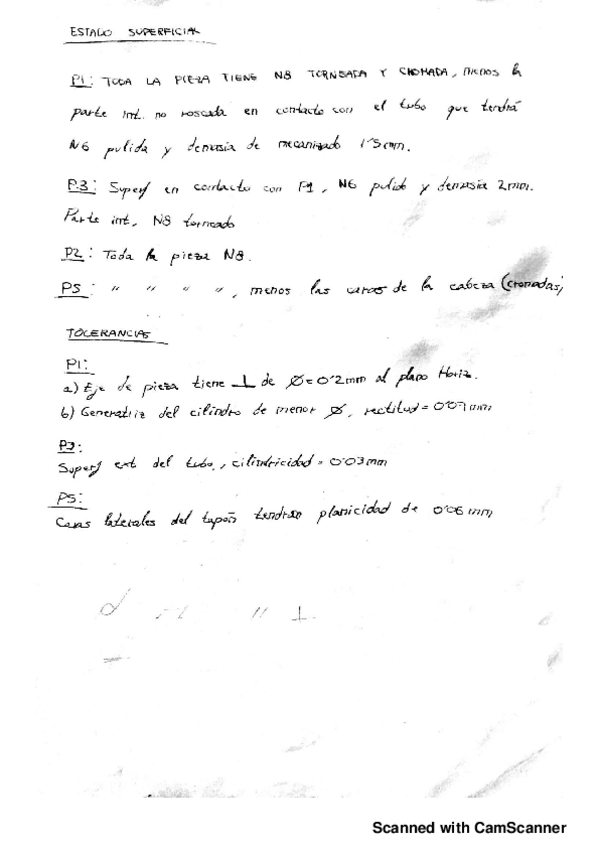 ESTADO SUPERFICIAL
P1: TODA LA PIEZA TIENE N8 TORNEADA Y CROMADA, menos la
parte int. no roscada en contacto con el tubo que tendrá
N6 pulida y demasía de mecanizado 1'5mm.
P3: Superf en contacto con P1, N6 pulido y demasía 2mm.
Parte int, N8 torneado
P2: Toda la pieza N8.
P5: " " " ", menos las caras de la cabeza (cromadas)
TOLERANCIAS
P1:
a) Eje de pieza tiene ⊥ de Ø=0'2mm al plano Horiz.
b) Generatriz del cilindro de menor Ø, rectitud = 0'07mm
P3:
Superf ext del tubo, cilindricidad = 0'03mm
P5:
Caras laterales del tapón tendrán planicidad de 0'06mm
// ⊥
Scanned with CamScanner